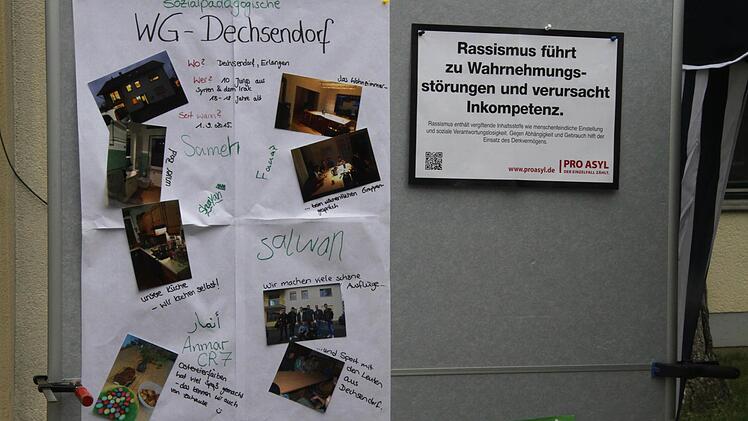 Sozialpädagogische
WG-Dechsendorf
Wo? Dechsendorf, Erlangen
Wer? 10 Jungs aus
Syrien & dem Irak
Seit wann?
1.9.2015
Das Wohnzimmer...
Sameh
... beim wöchentlichen Gruppen-
gespräch
salwan
unsere Küche
- Wir kochen selbst!
Wir machen viele schöne
Ausflüge...
أنمار
Anmar
CR7
Ostereierfärben
hat viel Spaß gemacht
- das kennen wir auch
von Zuhause
...und Sport mit
den Leuten
aus
Dechsendorf.
Rassismus führt
zu Wahrnehmungs-
störungen und verursacht
Inkompetenz.
Rassismus enthält vergiftende Inhaltsstoffe wie menschenfeindliche Einstellung
und soziale Verantwortungslosigkeit. Gegen Abhängigkeit und Gebrauch hilft der
Einsatz des Denkvermögens.
www.proasyl.de
PRO ASYL
DER EINZELFALL ZÄHLT.